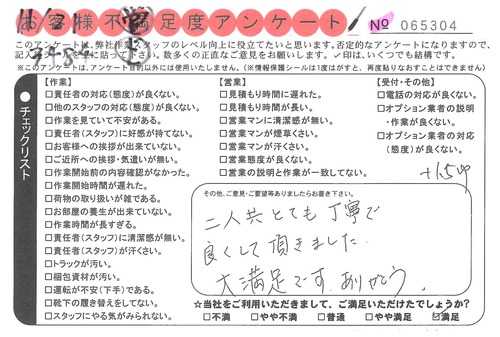 お客様不満足度アンケート No 065304
11/21
このアンケートは、弊社作業スタッフのレベル向上に役立てたいと思います。否定的なアンケートになりますので、
記入後シールを裏に貼って下さい。数多くの正直なご意見をお願いします。✓印は、いくつでも結構です。
※このアンケートは、アンケート目的以外には使用いたしません。(※情報保護シールは1度はがすと、再度貼りなおすことはできません)
チェックリスト
【作業】
□責任者の対応(態度)が良くない。
□他のスタッフの対応(態度)が良くない。
□作業を見ていて不安がある。
□責任者(スタッフ)に好感が持てない。
□お客様への挨拶が出来ていない。
□ご近所への挨拶・気遣いが無い。
□作業開始前の内容確認がなかった。
□作業開始時間が遅れた。
□荷物の取り扱いが雑である。
□お部屋の養生が出来ていない。
□作業時間が長すぎる。
□責任者(スタッフ)に清潔感が無い。
□責任者(スタッフ)が汗くさい。
□トラックが汚い。
□梱包資材が汚い。
□運転が不安(下手)である。
□靴下の履き替えをしてない。
□スタッフにやる気がみられない。
【営業】
□見積もり時間に遅れた。
□見積もり時間が長い。
□営業マンに清潔感が無い。
□営業マンが煙草くさい。
□営業マンが汗くさい。
□営業態度が良くない。
□営業の説明と作業が一致してない。
【受付・その他】
□電話の対応が良くない。
□オプション業者の説明
・作業が良くない。
□オプション業者の対応
(態度)が良くない。
その他、ご意見・ご要望等ありましたらお書き下さい。
二人共とても丁寧で
良くして頂きました。
大満足です。ありがとう。
☆当社をご利用いただきまして、ご満足いただけたでしょうか?
□不満 □やや不満 □普通 □やや満足 ☑満足